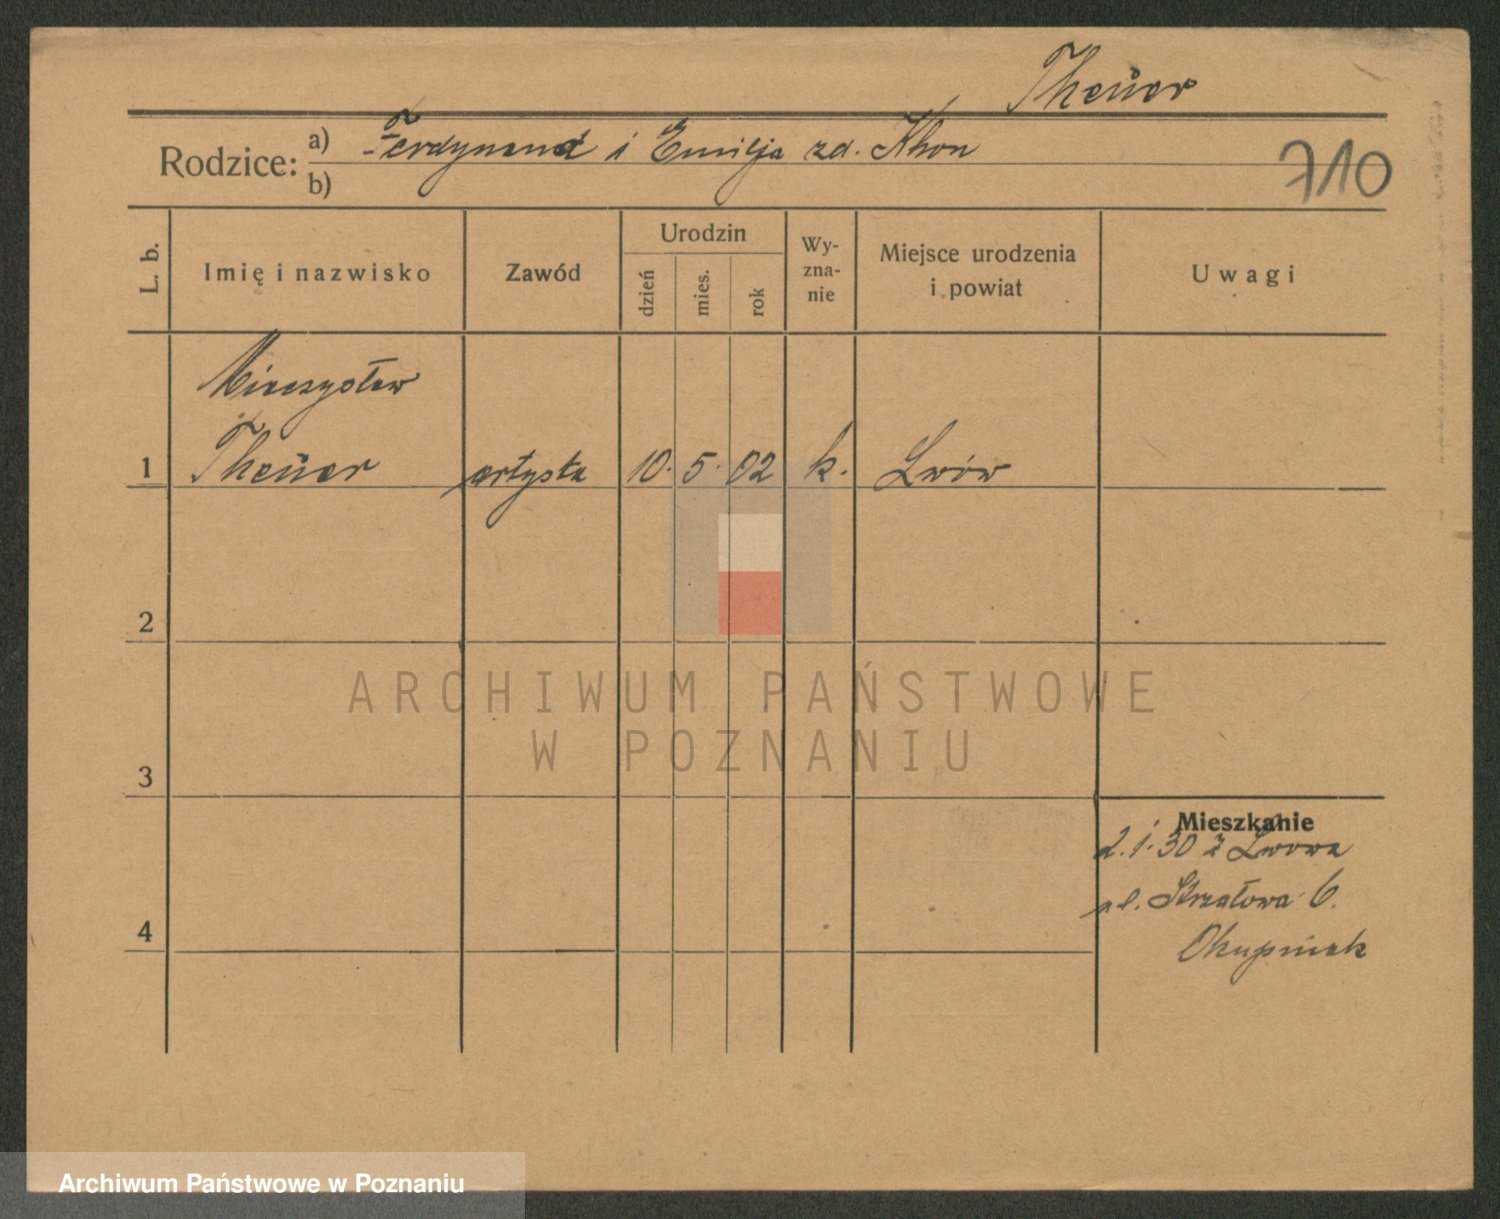 Theuer
Rodzice: a) Ferdynand i Emilja zd. Khon
b)
710
L. b. Imię i nazwisko Zawód Urodzin dzień mies. rok Wy-zna-nie Miejsce urodzenia i powiat Uwagi
Mieczysław
1 Theuer artysta 10. 5. 02 k. Lwów
2
ARCHIWUM PAŃSTWOWE
W POZNANIU
3
Mieszkanie
2.1.30 z Lwowa
ul. Strzałowa 6.
4
Okupniak
Archiwum Państwowe w Poznaniu